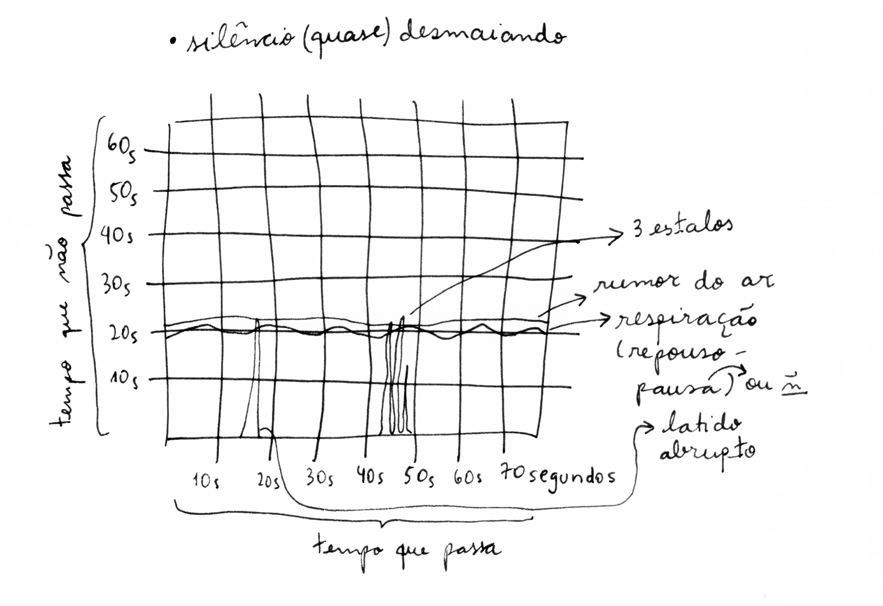 • silêncio (quase) desmaiando
60s
50s
40s
30s
20s
10s
tempo que não passa
3 estalos
rumor do ar
respiração
(repouso -
pausa) ou ñ
latido
abrupto
10s 20s 30s 40s 50s 60s 70 segundos
tempo que passa